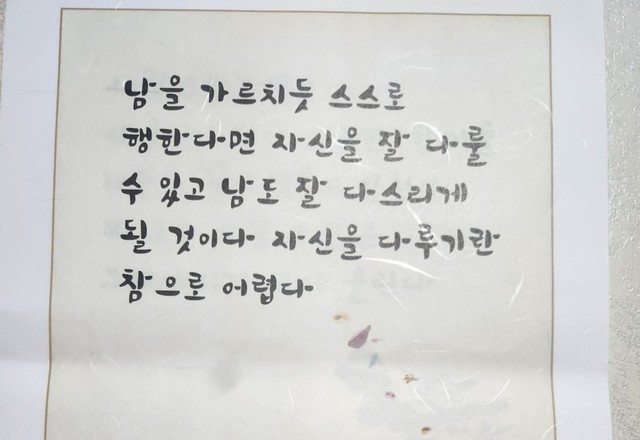 남을 가르치듯 스스로
행한다면 자신을 잘 다룰
수 있고 남도 잘 다스리게
될 것이다 자신을 다루기란
참으로 어렵다